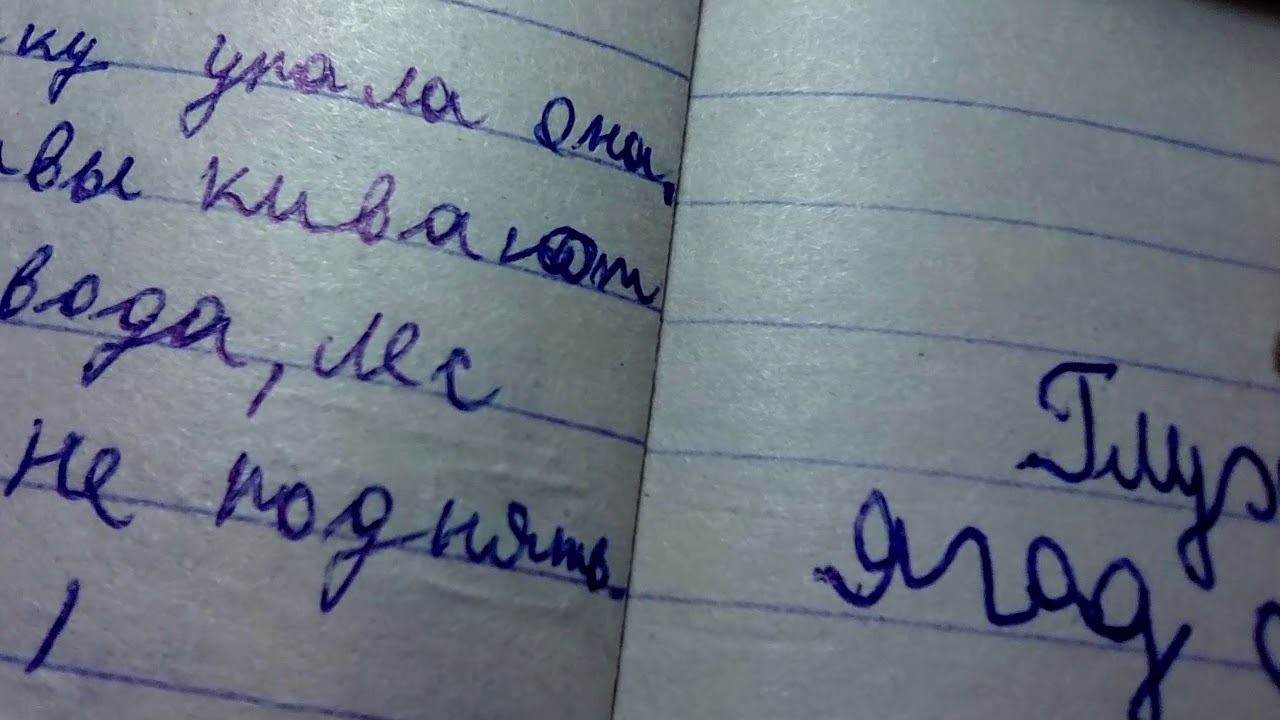 ку упала она,
вы кивают
вода, лес
не поднять.
Глух
ягод